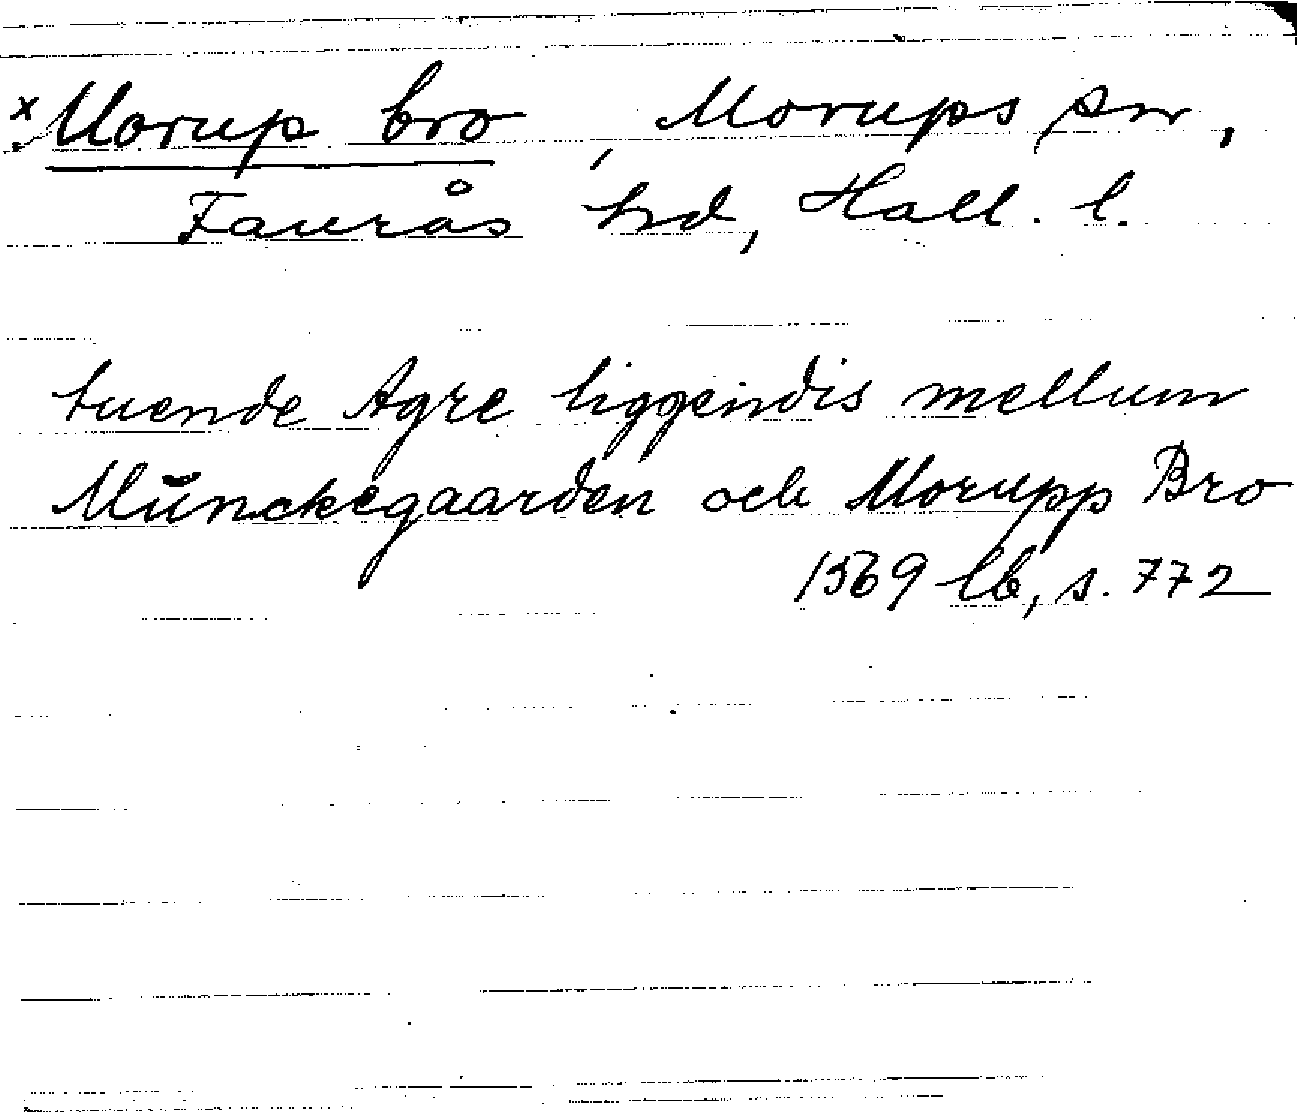 x Morup bro, Morups sn,
Faurås hd, Hall. l.
tuende Agre liggendis mellum
Mŭnckegaarden och Morupp Bro
1569 lb, s. 772